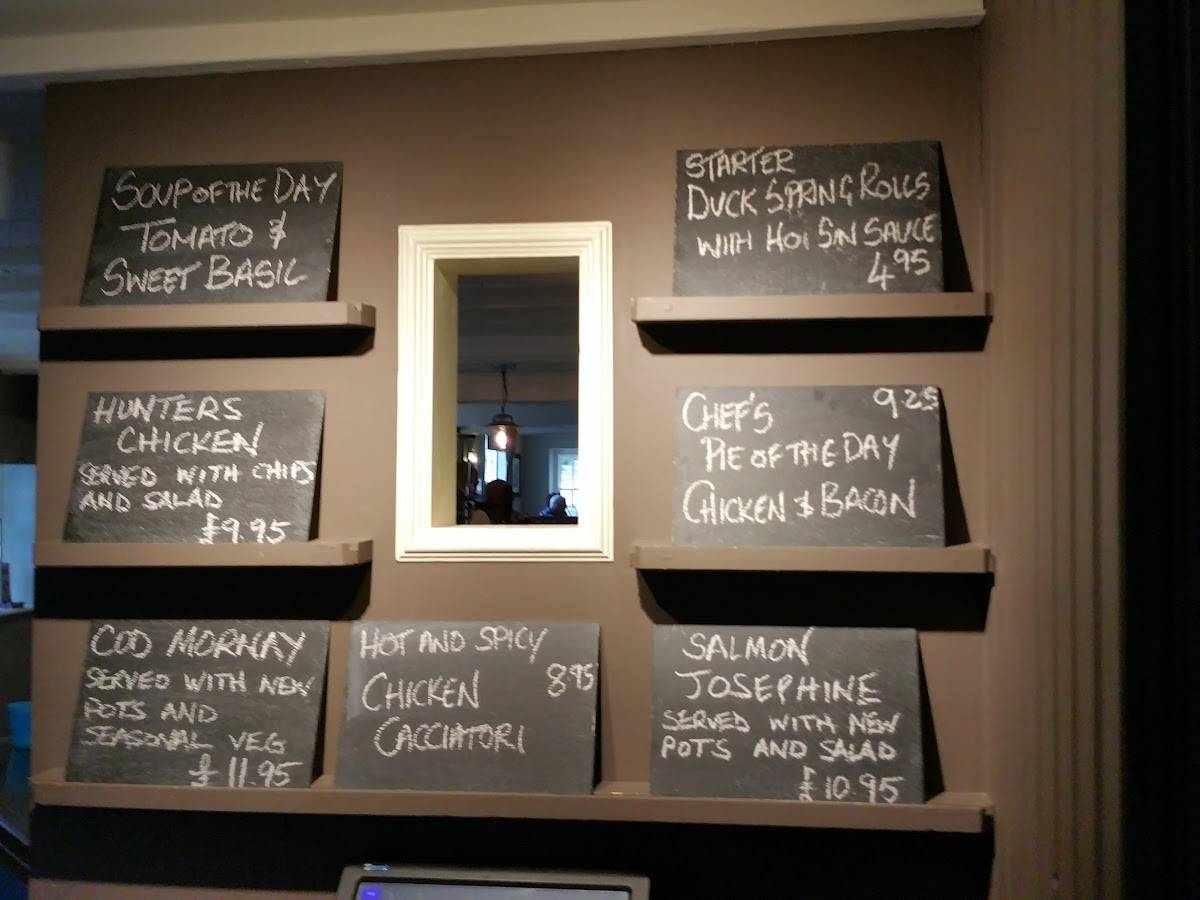 SOUP OF THE DAY
TOMATO &
SWEET BASIL
STARTER
DUCK SPRING ROLLS
WITH HOI SIN SAUCE
4.95
HUNTERS
CHICKEN
SERVED WITH CHIPS
AND SALAD
£9.95
CHEF'S 9.25
PIE OF THE DAY
CHICKEN & BACON
COD MORNAY
SERVED WITH NEW
POTS AND
SEASONAL VEG
£11.95
HOT AND SPICY
CHICKEN 8.95
CACCIATORI
SALMON
JOSEPHINE
SERVED WITH NEW
POTS AND SALAD
£10.95